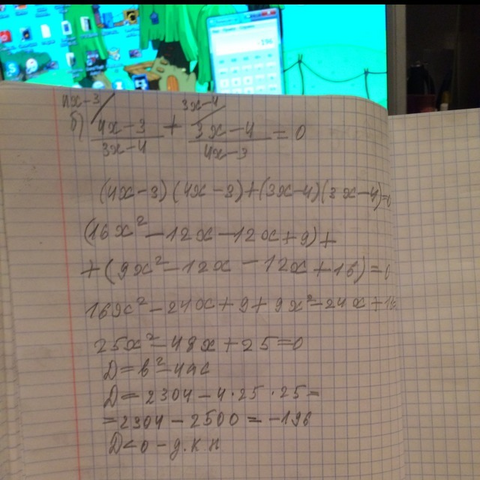 4x-3/ 3x-4/
б) 4x-3/3x-4 + 3x-4/4x-3 = 0
(4x-3)(4x-3)+(3x-4)(3x-4)=0
(16x²-12x-12x+9)+
+(9x²-12x-12x+16)=0
16x²-24x+9+9x²-24x+16
25x²-48x+25=0
D=b²-4ac
D=2304-4·25·25=
=2304-2500=-196
D<0-д.к н